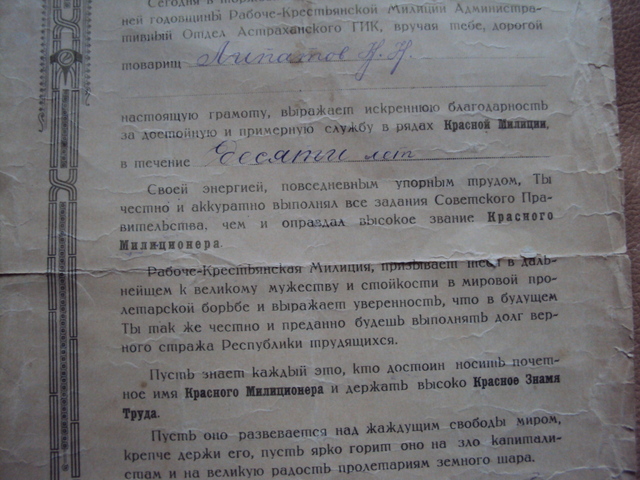 Сегодня в
ней годовщины Рабоче-Крестьянской Милиции Администра-
тивный Отдел Астраханского ГИК, вручая тебе, дорогой
товарищ Липатов Н. Н.
настоящую грамоту, выражает искреннюю благодарность
за достойную и примерную службу в рядах Красной Милиции,
в течение Десяти лет
Своей энергией, повседневным упорным трудом, Ты
честно и аккуратно выполнял все задания Советского Пра-
вительства, чем и оправдал высокое звание Красного
Милиционера.
Рабоче-Крестьянская Милиция, призывает тебя в даль-
нейщем к великому мужеству и стойкости в мировой про-
летарской борьбе и выражает уверенность, что в будущем
Ты так же честно и преданно будешь выполнять долг вер-
ного стража Республики трудящихся.
Пусть знает каждый это, кто достоин носить почет-
ное имя Красного Милиционера и держать высоко Красное Знамя
Труда.
Пусть оно развевается над жаждущим свободы миром,
крепче держи его, пусть ярко горит оно на зло капитали-
стам и на великую радость пролетариям земного шара.